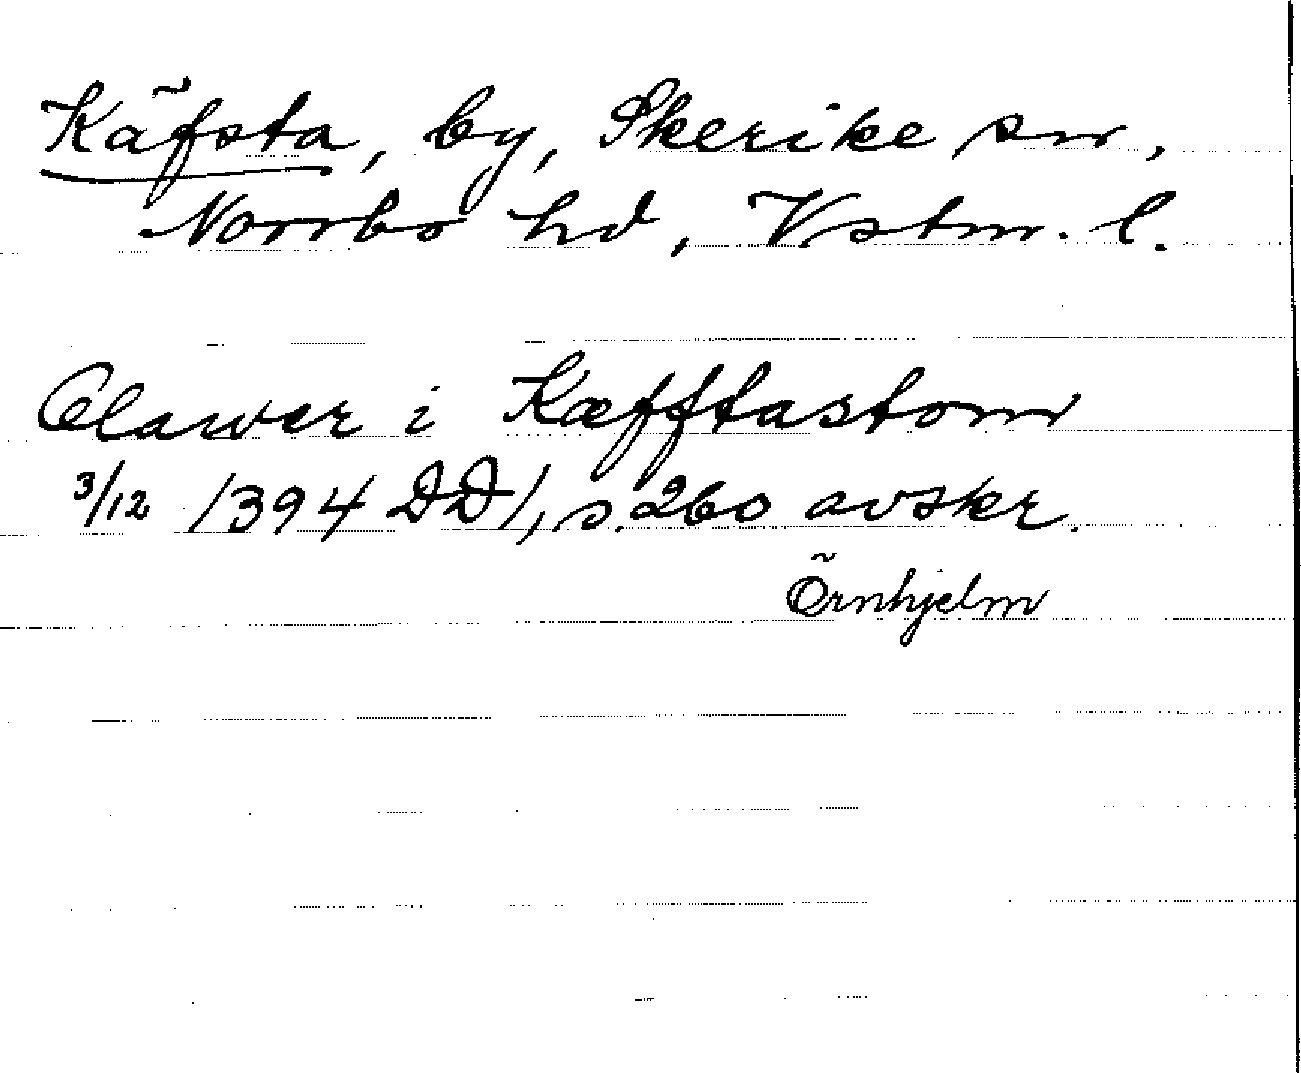 Käfsta, by, Skerike sn,
Norrbo hd, Vstm. l.
Olawer i Kæfftastom
3/12 1394 DD1, s. 260 avskr.
Örnhjelm